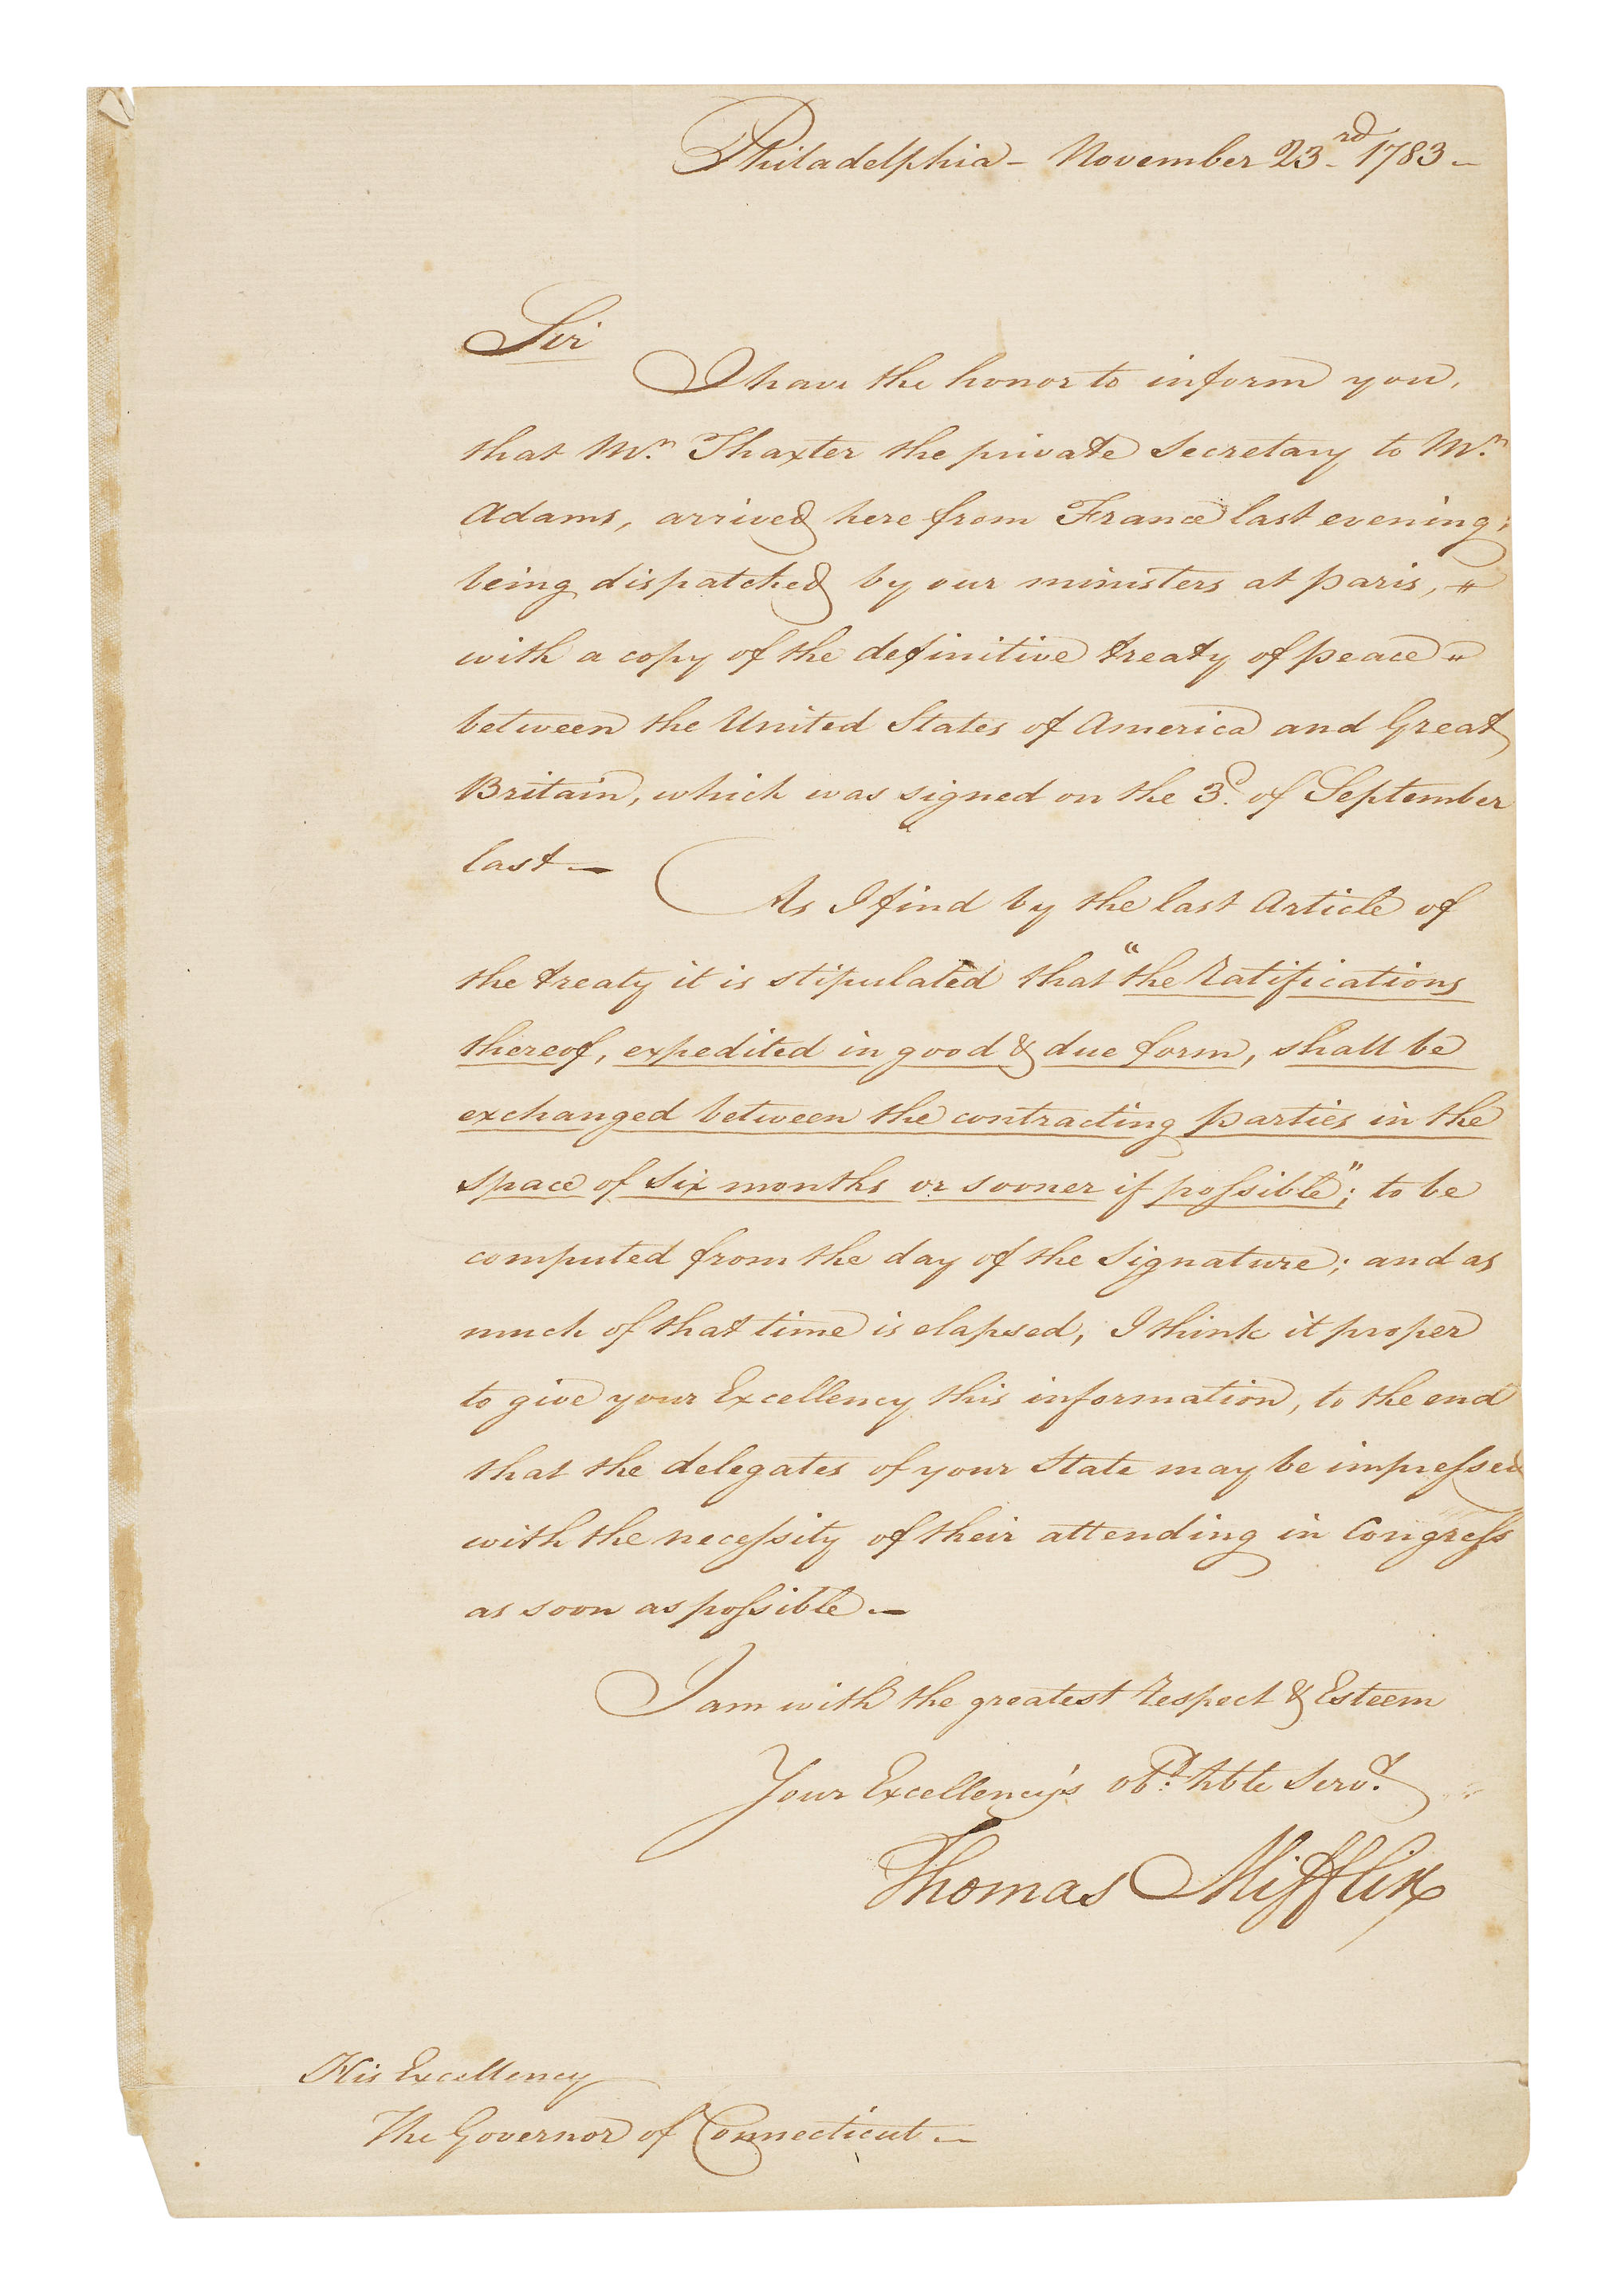 Philadelphia - November 23rd 1783 -
Sir
I have the honor to inform you,
that Mr. Thaxter the private Secretary to Mr.
Adams, arrived here from France last evening,
being dispatched by our ministers at paris,
with a copy of the definitive treaty of peace
between the United States of America and Great
Britain, which was signed on the 3d. of September
last —
As I find by the last Article of
the treaty it is stipulated that "the Ratifications
thereof, expedited in good & due form, shall be
exchanged between the contracting parties in the
space of six months or sooner if poſsible"; to be
computed from the day of the Signature; and as
much of that time is elapsed, I think it proper
to give your Excellency this information, to the end
that the delegates of your State may be impreſsed
with the neceſsity of their attending in Congreſs
as soon as poſsible —
I am with the greatest Respect & Esteem
Your Excellency's obt. hble Servt.
Thomas Mifflin
His Excellency
The Governor of Connecticut —